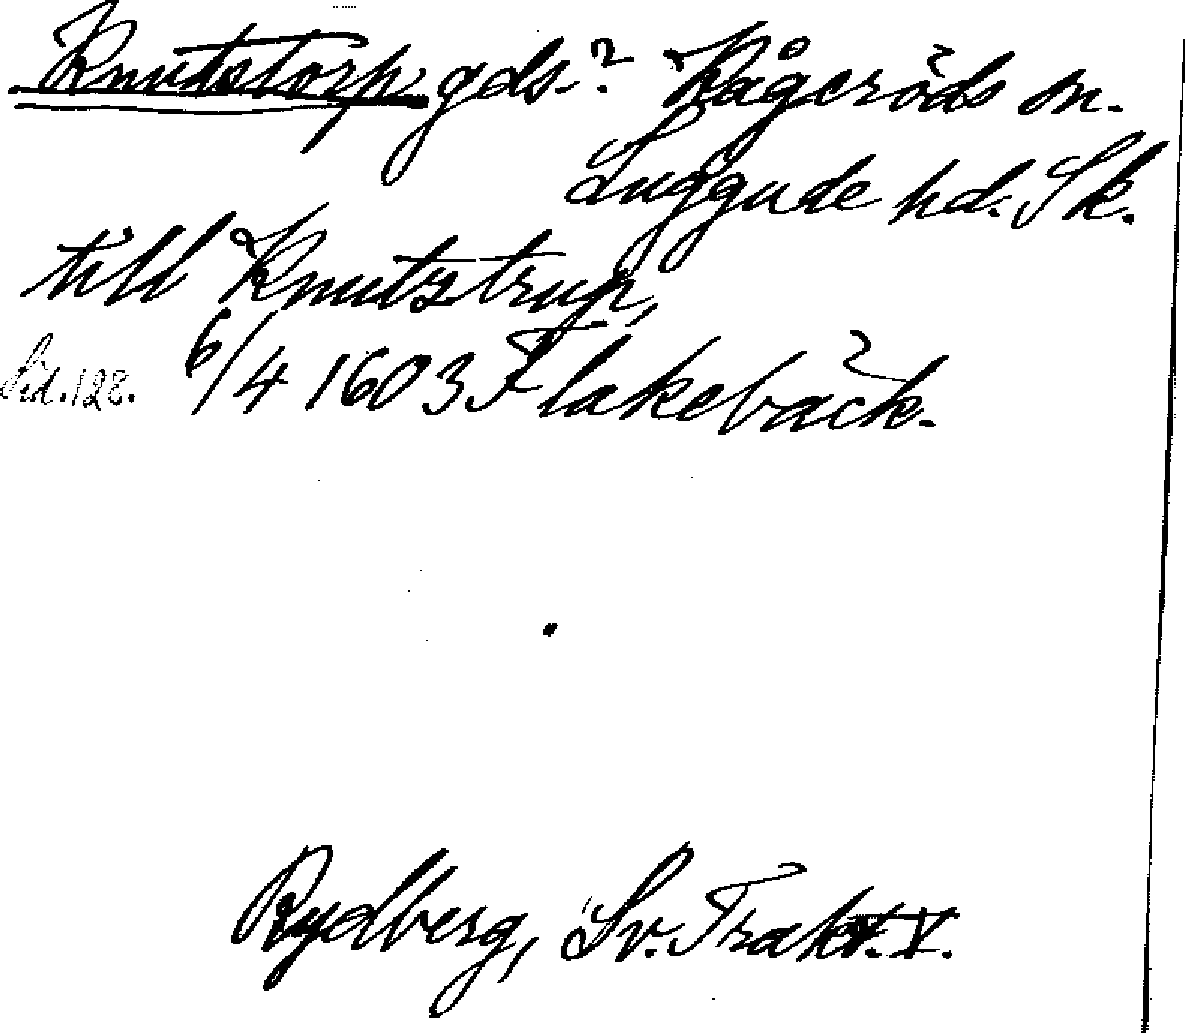 Knutstorp gds.? Kågeröds sn.
Luggude hd. Sk.
till Knutztrup,
Sid. 128. 6/4 1603 Flakebäck.
Rydberg, Sv. Trakt. V.